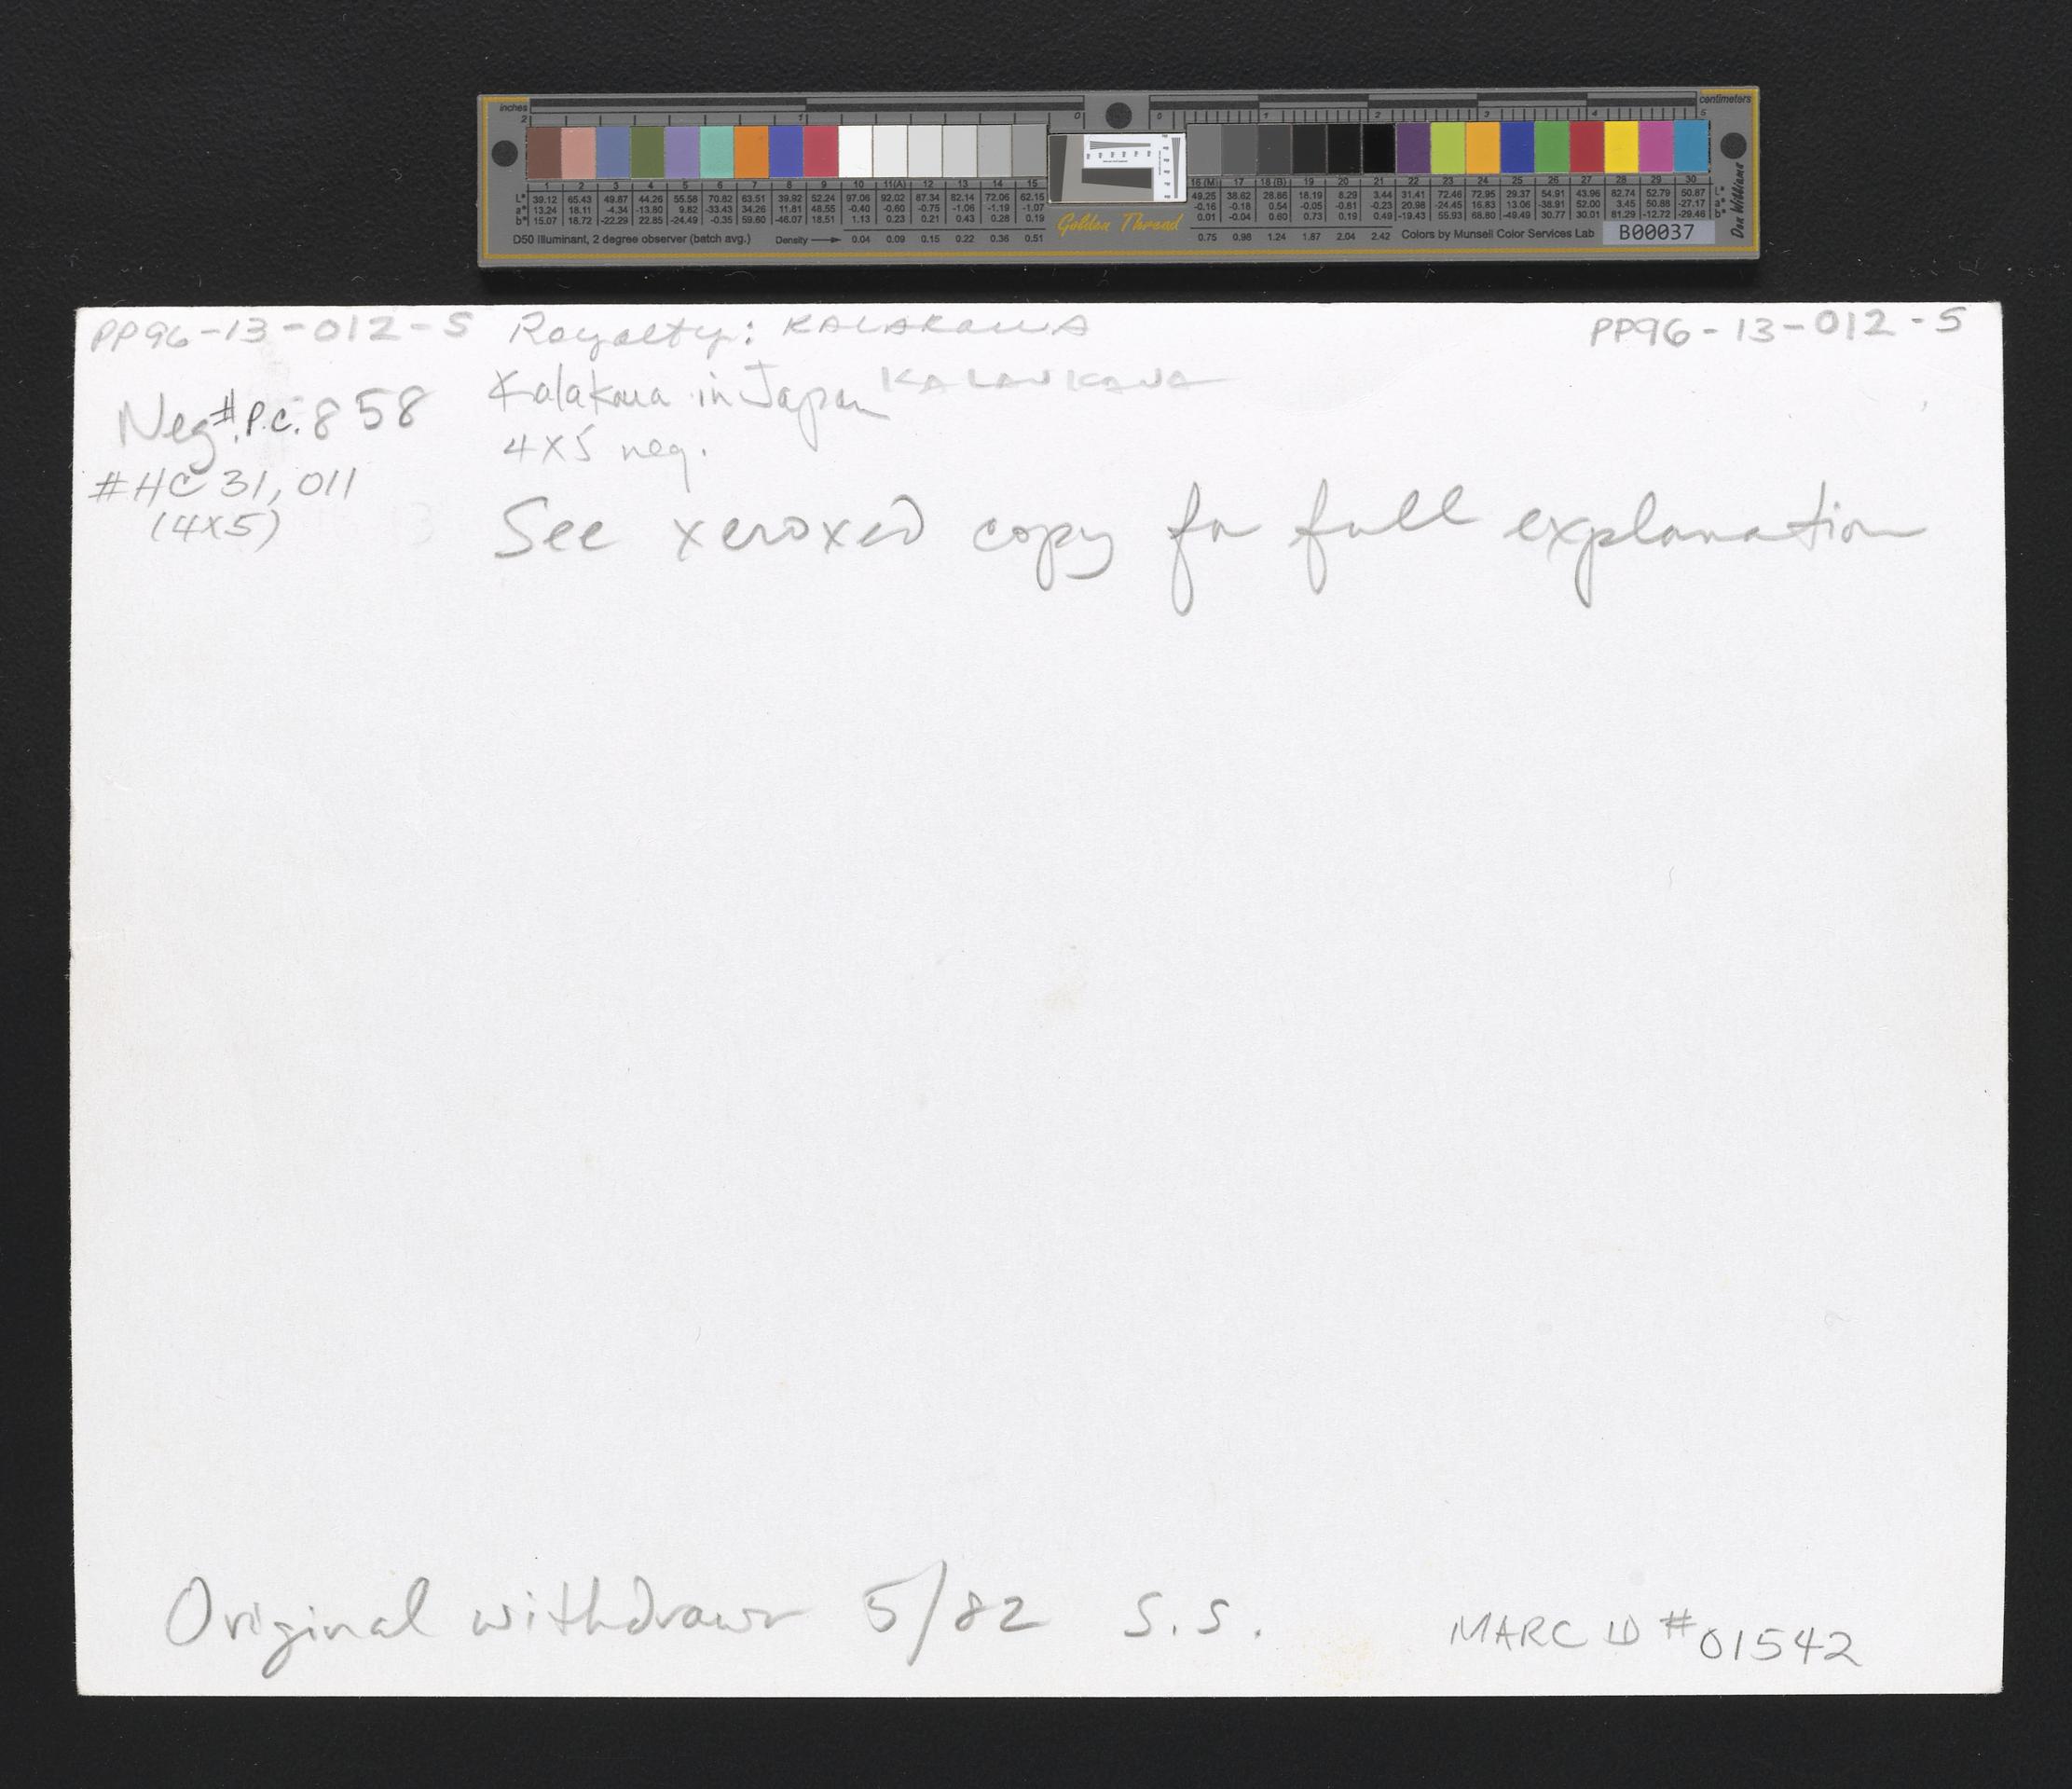 inches
centimeters
2 1 0 0 1 2 3 4 5
1 2 3 4 5 6 7 8 9 10 11(A) 12 13 14 15 16 (M) 17 18 (B) 19 20 21 22 23 24 25 26 27 28 29 30
L* 39.12 65.43 49.87 44.26 55.58 70.82 63.51 39.92 52.24 97.06 92.02 87.34 82.14 72.06 62.15 49.25 38.62 28.86 18.19 8.29 3.44 31.41 72.46 72.95 29.37 54.91 43.96 82.74 52.79 50.87 L*
a* 13.24 18.11 -4.34 -13.80 9.82 -33.43 34.26 11.81 48.55 -0.40 -0.60 -0.75 -1.06 -1.19 -1.07 -0.16 -0.18 0.54 -0.05 -0.81 -0.23 20.98 -24.45 16.83 13.06 -38.91 52.00 3.45 50.88 -27.17 a*
b* 15.07 18.72 -22.29 22.85 -24.49 -0.35 59.60 -46.07 18.51 1.13 0.23 0.21 0.43 0.28 0.19 0.01 -0.04 0.60 0.73 0.19 0.49 -19.43 55.93 68.80 -49.49 30.77 30.01 81.29 -12.72 -29.46 b*
D50 Illuminant, 2 degree observer (batch avg.) Density 0.04 0.09 0.15 0.22 0.36 0.51 Golden Thread 0.75 0.98 1.24 1.87 2.04 2.42 Colors by Munsell Color Services Lab B00037
Don Williams
PP96-13-012-S Royalty: KALAKAUA PP96-13-012-S
Kalakaua in Japan KALAUKAUA
Neg# P.C. 858
4X5 neg.
#HC 31,011
(4X5)
See xeroxed copy for full explanation
Original withdrawn 5/82 S.S.
MARC ID #01542